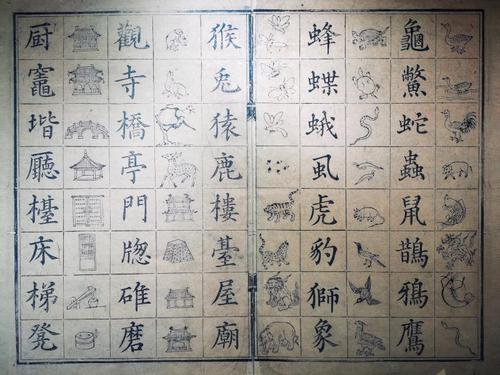 龜鱉蛇蟲鼠鵲鴉鷹
蜂蝶蛾虱虎豹獅象
猴兔猿鹿樓臺屋廟
觀寺橋亭門牕碓磨
厨竈堦廳檯床梯凳